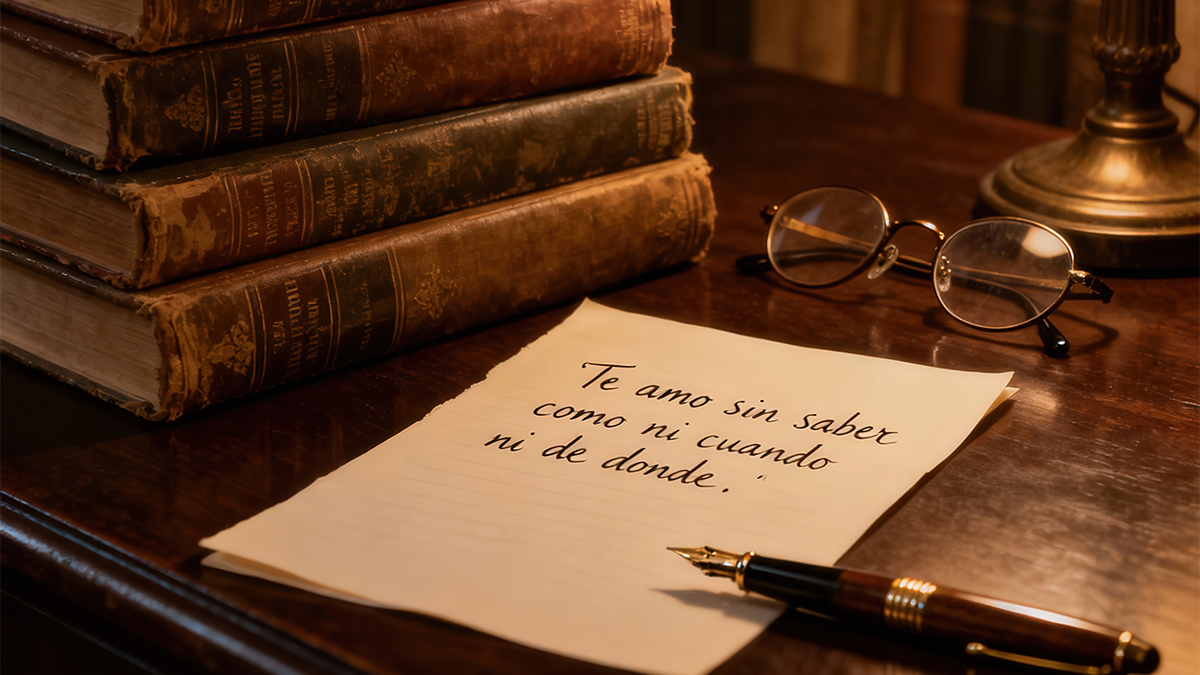 Te amo sin saber
como ni cuando
ni de donde.